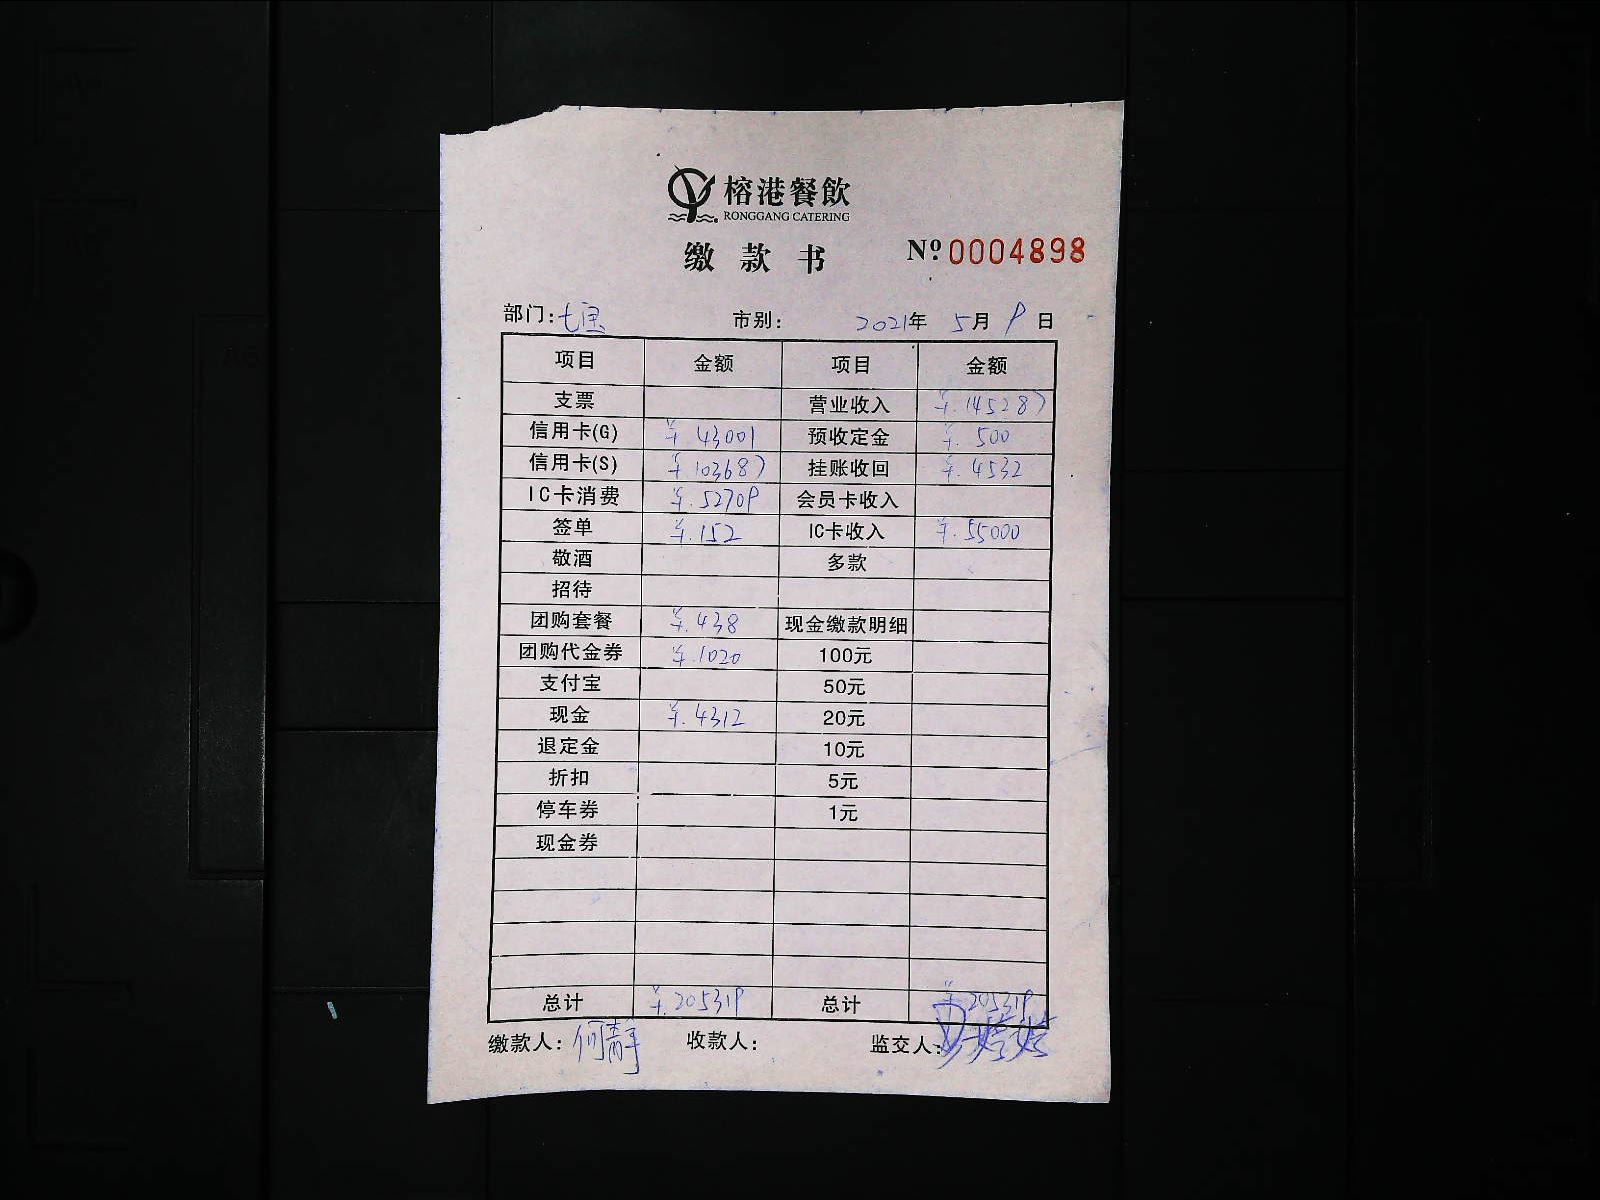 榕港餐飲
RONGGANG CATERING
缴款书 Nº 0004898
部门: 七宝 市别: 2021年 5月 9日
项目 金额 项目 金额
支票 营业收入 ¥.145287
信用卡(G) ¥.43001 预收定金 ¥.500
信用卡(S) ¥.103687 挂账收回 ¥.4532
IC卡消费 ¥.52709 会员卡收入
签单 ¥.152 IC卡收入 ¥.55000
敬酒 多款
招待
团购套餐 ¥.438 现金缴款明细
团购代金券 ¥.1020 100元
支付宝 50元
现金 ¥.4312 20元
退定金 10元
折扣 5元
停车券 1元
现金券
总计 ¥.205319 总计 ¥.205319
缴款人: 何静 收款人: 监交人: